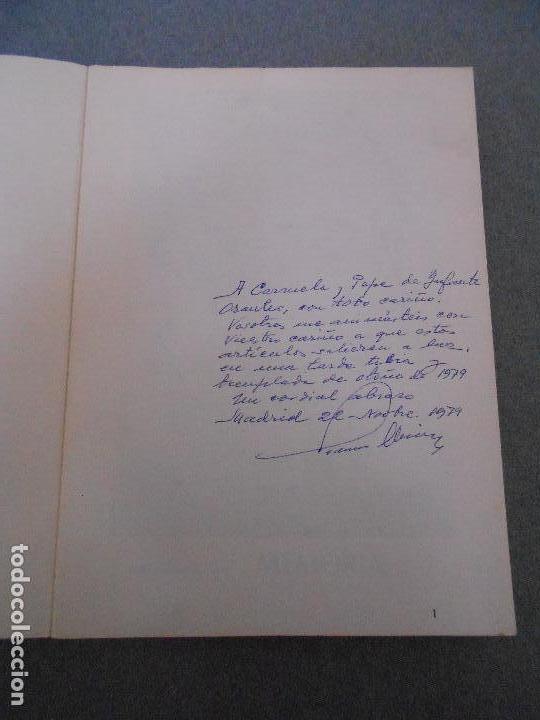 A Carmela y Pepe de
con todo cariño.
Vosotros me animásteis con
vuestro cariño a que estos
artículos salieran a luz,
en una tarde tibia y
templada de otoño de 1979
Un cordial abrazo
Madrid Novbre. 1979
1
todocoleccion.net